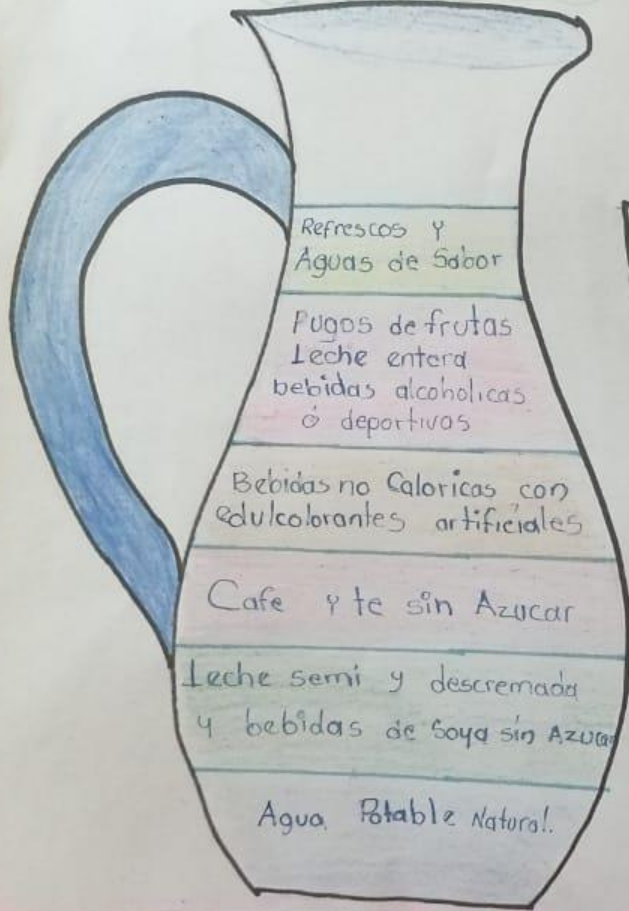 Refrescos y
Aguas de Sabor
Pugos de frutas
Leche entera
bebidas alcoholicas
ó deportivas
Bebidas no Caloricas con
edulcolorantes artificiales
Cafe y te sin Azucar
Leche semi y descremada
y bebidas de Soya sin Azucar
Agua Potable Natural.